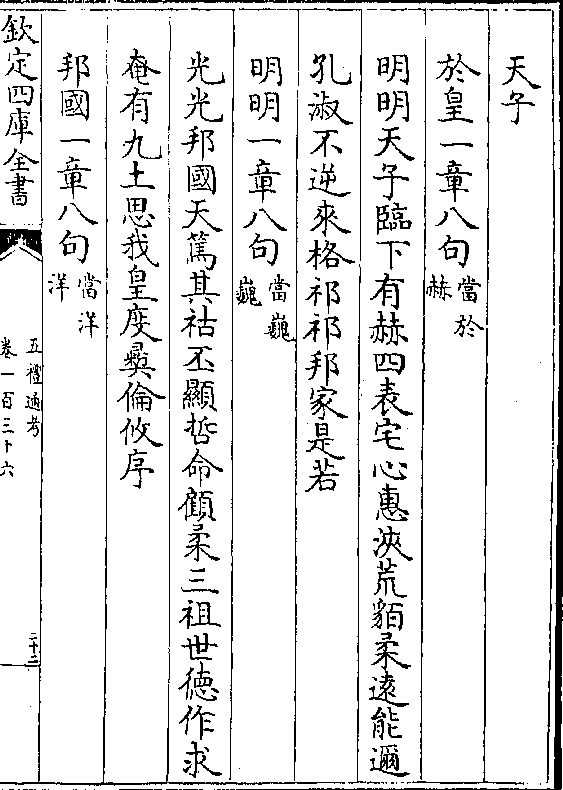 天子
於皇一章八句當於赫
明明天子臨下有赫四表宅心惠浹荒貊柔遠能邇
孔淑不逆來格祁祁邦家是若
明明一章八句當巍巍
光光邦國天篤其祜丕顯哲命顧柔三祖世德作求
奄有九土思我皇度彝倫攸序
邦國一章八句當洋洋
欽定四庫全書
五禮通考
卷一百三十六
二十二